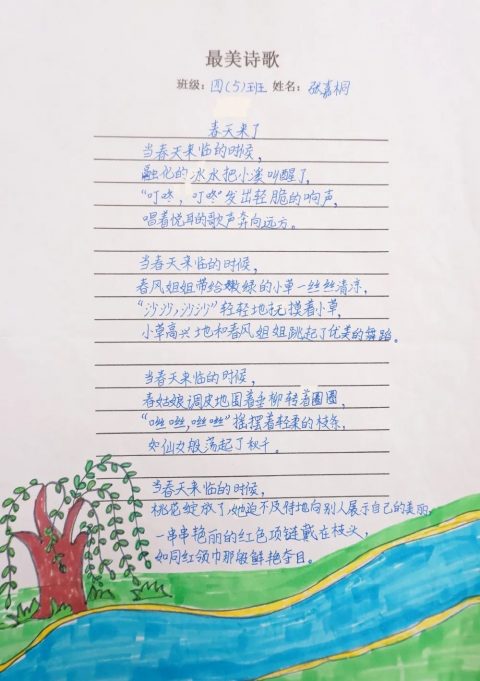 最美诗歌
班级：四(5)班 姓名：张嘉桐
春天来了
当春天来临的时候，
融化的冰水把小溪叫醒了，
“叮咚，叮咚”发出轻脆的响声，
唱着悦耳的歌声奔向远方。
当春天来临的时候，
春风姐姐带给嫩绿的小草一丝丝清凉，
“沙沙，沙沙”轻轻地抚摸着小草，
小草高兴地和春风姐姐跳起了优美的舞蹈。
当春天来临的时候，
春姑娘调皮地围着垂柳转着圈圈，
“咝咝，咝咝”摇摆着轻柔的枝条，
如仙女般荡起了秋千。
当春天来临的时候，
桃花绽放了她迫不及待地向别人展示自己的美丽，
一串串艳丽的红色项链戴在枝头，
如同红领巾那般鲜艳夺目。